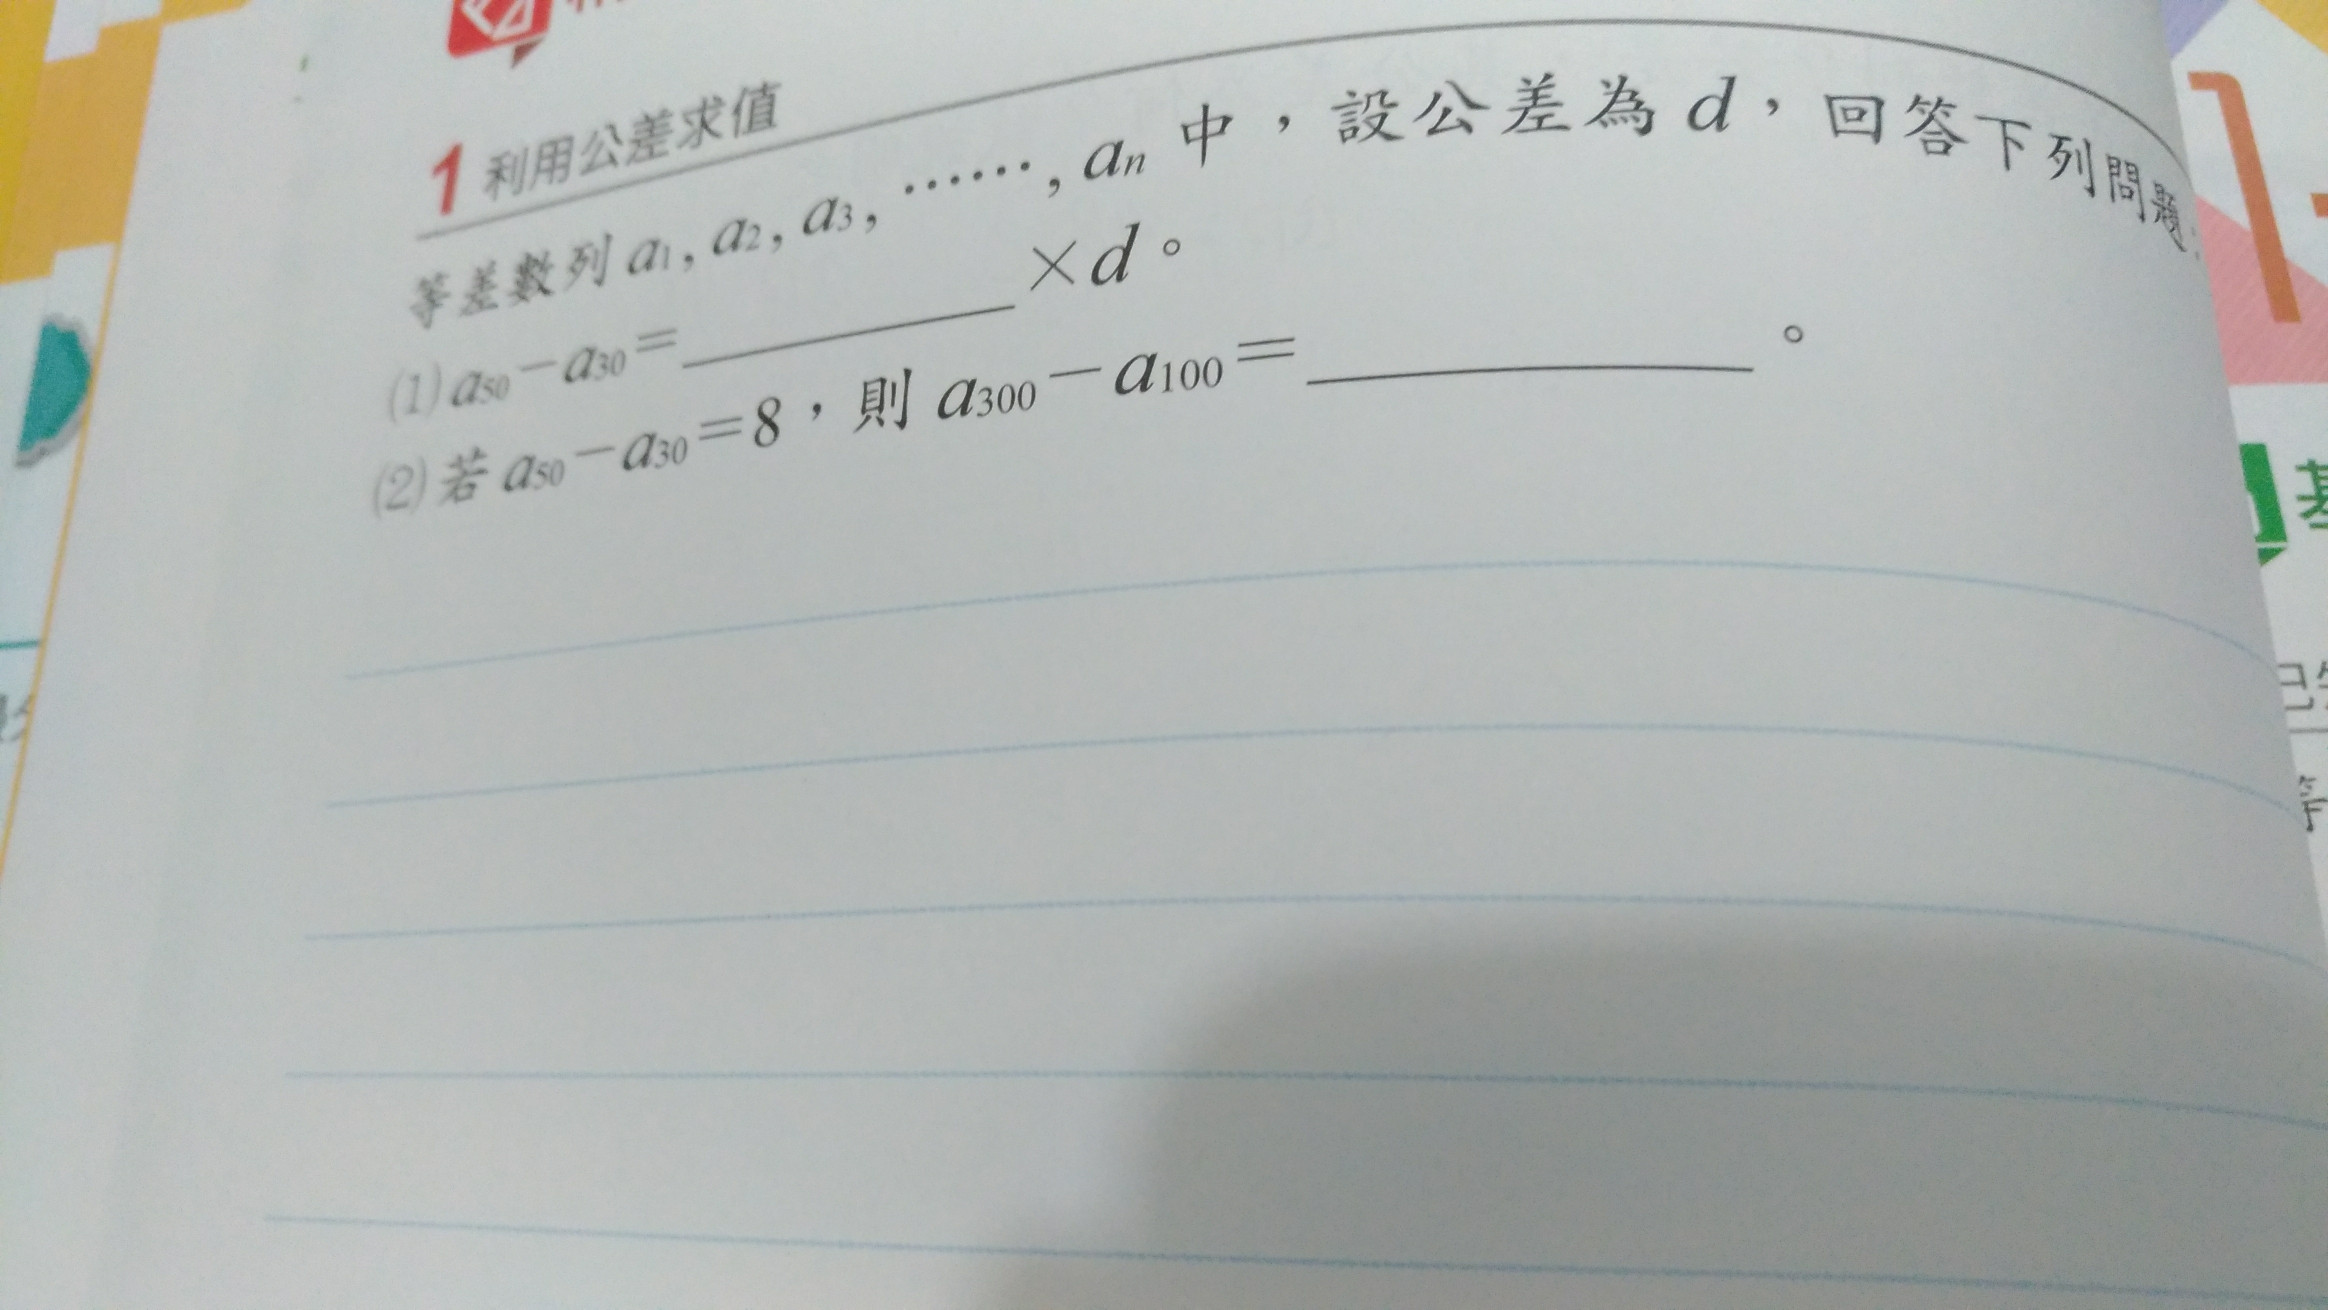 1 利用公差求值
等差數列 a1, a2, a3, ⋯⋯, an 中，設公差為 d，回答下列問題：
(1) a50－a30＝________×d。
(2) 若 a50－a30＝8，則 a300－a100＝________。
基